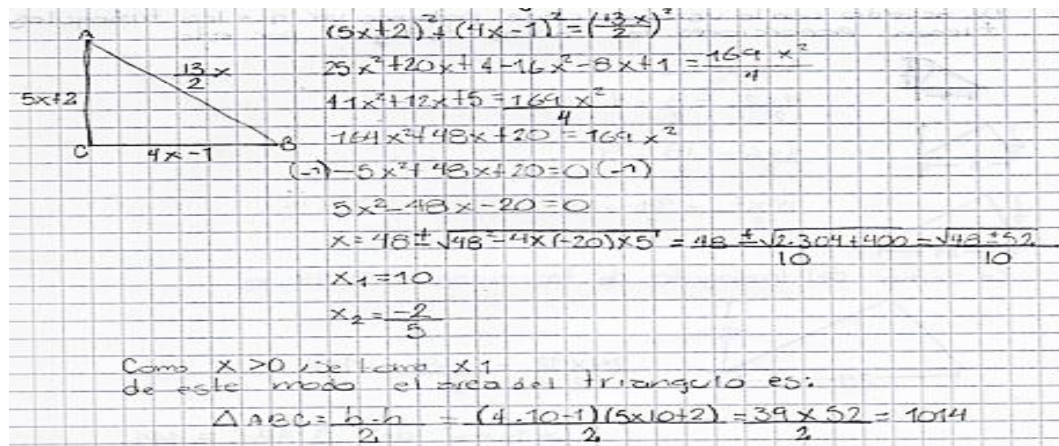 (5x+2)² + (4x-1)² = (13/2 x)²
A
13/2 x
25x²+20x+4-16x²-8x+1 = 169 x²/4
5x+2
41x²+12x+5 = 169 x²/4
164x²+48x+20 = 169x²
C 4x-1 B
(-1) -5x²+48x+20=0 (-1)
5x²-48x-20=0
x = 48 ± √48²-4x(-20)x5 = 48 ± √2.304+400/10 = √48 ± 52/10
x1=10
x2 = -2/5
Como x>0 se toma x1
de este modo el area del triangulo es:
△ABC = b.h/2 = (4.10-1)(5x10+2)/2 = 39 x 52/2 = 1014